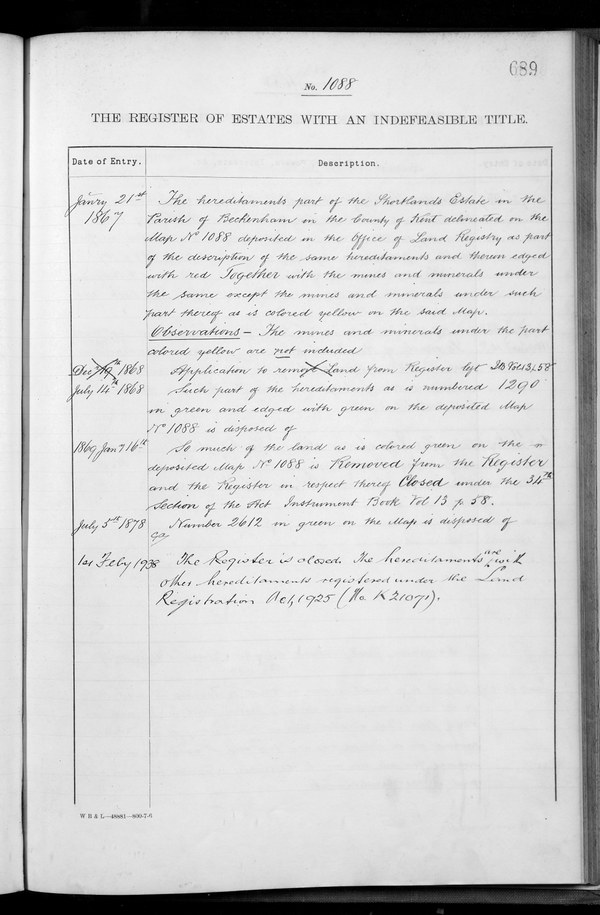 689
No. 1088
THE REGISTER OF ESTATES WITH AN INDEFEASIBLE TITLE.
Date of Entry. Description.
Janry 21st The hereditaments part of the Shortlands Estate in the
1867 Parish of Beckenham in the County of Kent delineated on the
Map No 1088 deposited in the Office of Land Registry as part
of the description of the same hereditaments and therein edged
with red Together with the mines and minerals under
the same except the mines and minerals under such
part thereof as is colored yellow on the said Map.
Observations - The mines and minerals under the part
colored yellow are not included
Dec 19th 1868 Application to remove Land from Register Vol 13 p. 58
July 14th 1868 Such part of the hereditaments as is numbered 1290
in green and edged with green on the deposited Map
No 1088 is disposed of
1869 Jany 16th So much of the land as is colored green on the
deposited Map No 1088 is Removed from the Register
and the Register in respect thereof Closed under the 34th
Section of the Act Instrument Book Vol 13 p 58.
July 5th 1878 Number 2612 in green on the Map is disposed of
1st Feby 1938 The Register is closed. The hereditaments are with
other hereditaments registered under the Land
Registration Act, 1925 (No. K 21091).
W B & L—48881—800-7-6